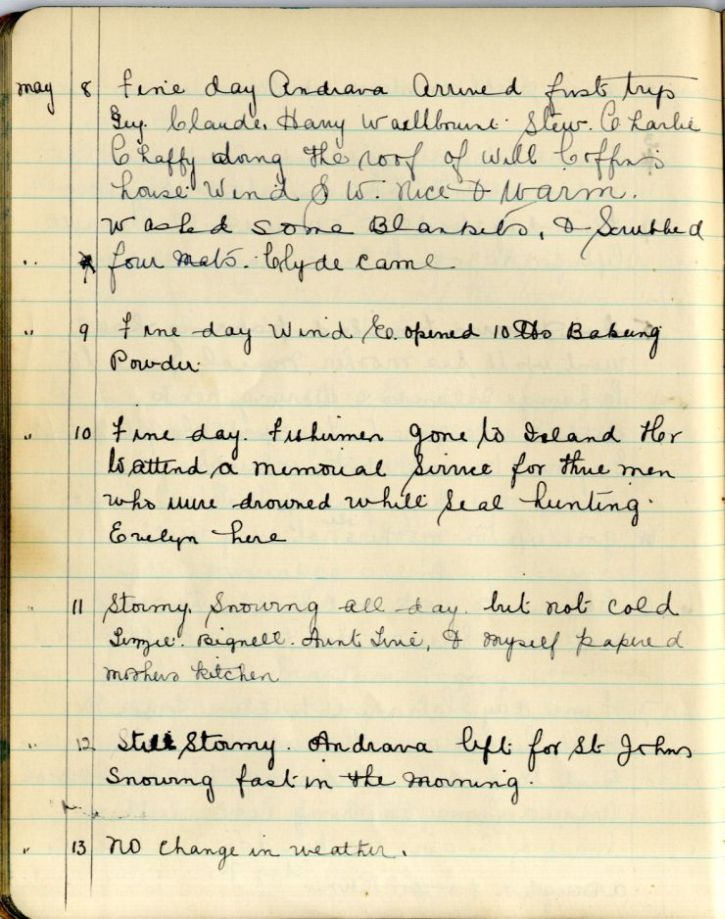 May 8 Fine day Andrava Arrived first trip
Guy. Claude. Harry Wallbourne. Stew. Charlie
Chaffy doing the roof of Will Coffins
house Wind S W. Nice & warm.
Washed some Blankets, & Scrubbed
" four mats. Clyde came
" 9 Fine day Wind E. opened 10 lbs Baking
Powder
" 10 Fine day. Fishermen gone to Island Hr
to attend a memorial Service for three men
who were drowned while Seal hunting.
Evelyn here
" 11 Stormy. Snowing all day. but not cold
Lizzie. Bignell. Aunt Linie, & myself papered
mothers kitchen
" 12 Still Stormy. Andrava left for St Johns
Snowing fast in the morning.
" 13 No change in weather.